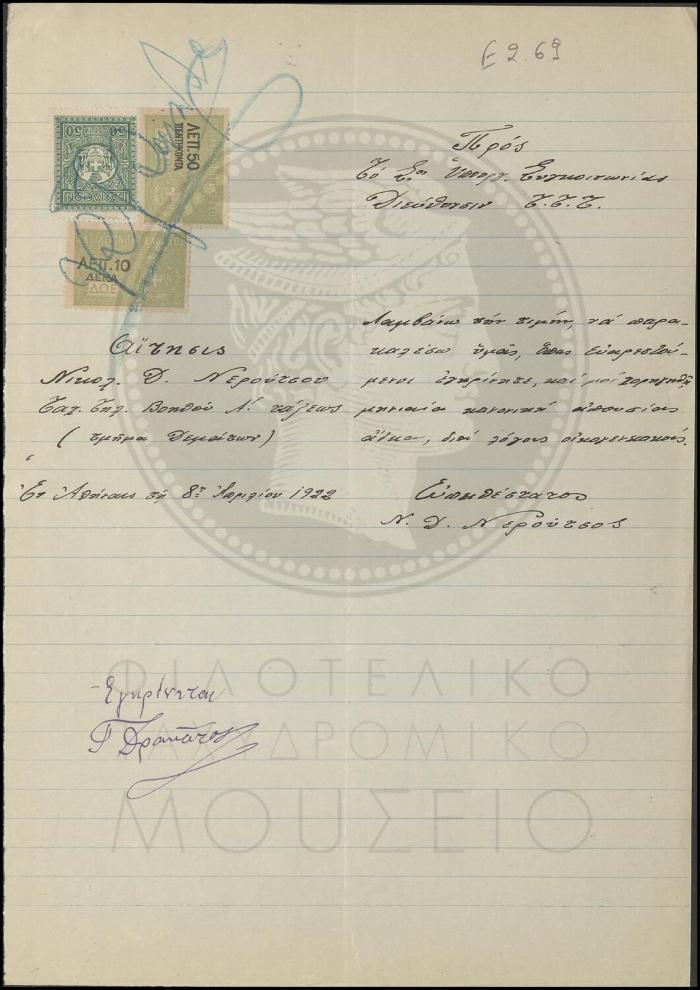 Ε 2.69
50 50
ΛΕΠ.50
ΠΕΝΤΗΚΟΝΤΑ
ΛΕΠ.10
ΔΕΚΑ
Πρός
Τό Σον Ὑπουργ. Συγκοινωνίας
Διεύθυνσιν Τ.Τ.Τ.
Αἴτησις
Νικολ. Δ. Νερούτσου
Ταχ. Τηλ. Βοηθοῦ Α΄. τάξεως
(τμῆμα Δεμάτων)
Ἐν Ἀθήναις τῇ 8ῃ Ἀπριλίου 1922
Λαμβάνω τήν τιμήν, νά παρα-
καλέσω ὑμᾶς, ὅπως εὐαρεστού-
μενοι ἐγκρίνητε, καί μοί χορηγηθῇ
μηνιαία κανονική ἀπουσίας
ἄδεια, διά λόγους οἰκογενειακούς.
Εὐπειθέστατος
Ν. Δ. Νερούτσος
Εγκρίνεται
ΦΙΛΟΤΕΛΙΚΟ
ΤΑΧΥΔΡΟΜΙΚΟ
ΜΟΥΣΕΙΟ